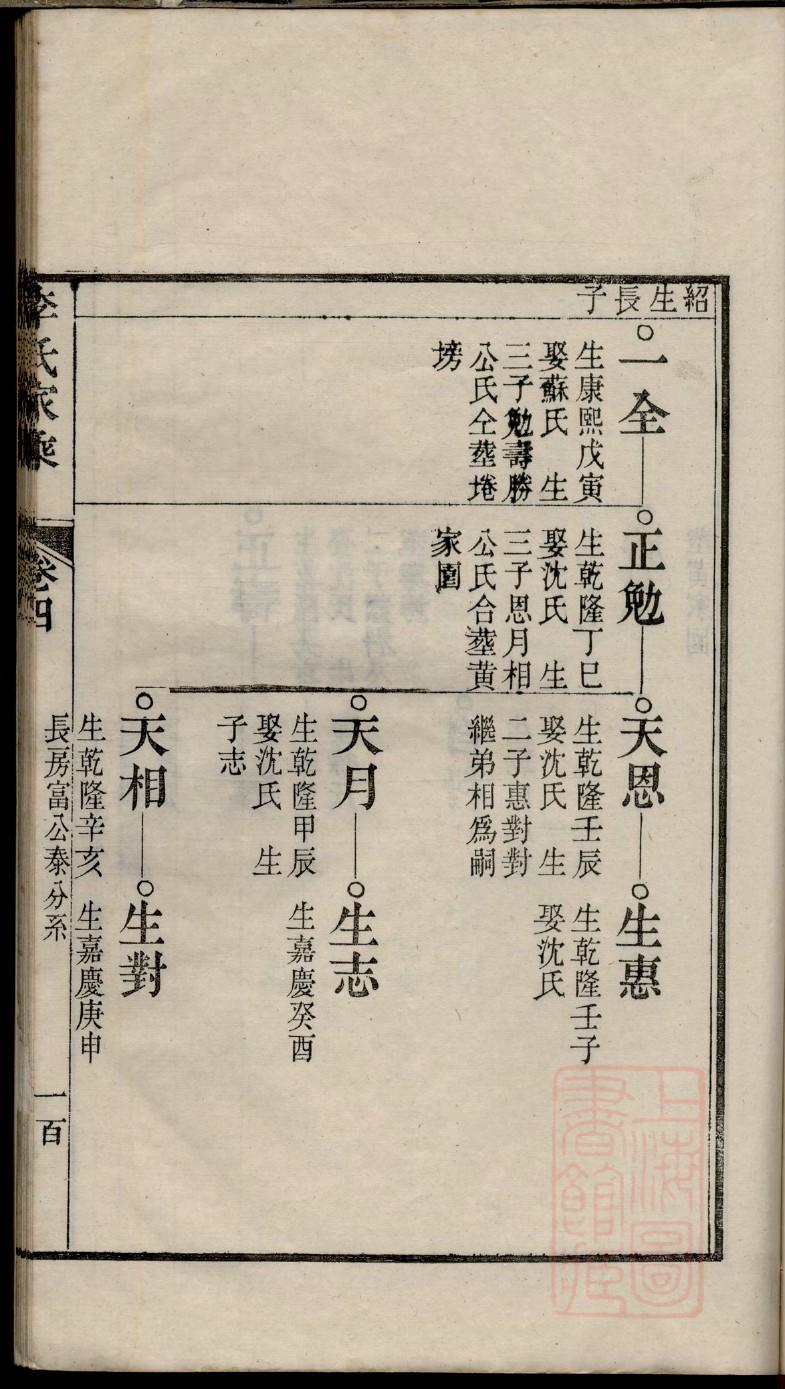 紹生長子
一全
生康熙戊寅
娶蘇氏　生
三子勉壽勝
公氏仝塟埢
塝
正勉
生乾隆丁巳
娶沈氏　生
三子恩月相
公氏合塟黄
家圓
天恩
生乾隆壬辰
娶沈氏　生
二子惠對對
繼弟相爲嗣
生惠
生乾隆壬子
娶沈氏
天月
生乾隆甲辰
娶沈氏　生
子志
生志
生嘉慶癸酉
天相
生乾隆辛亥
生對
生嘉慶庚申
長房富公泰分系
李氏家乘
卷四
一百
上海圖書館藏